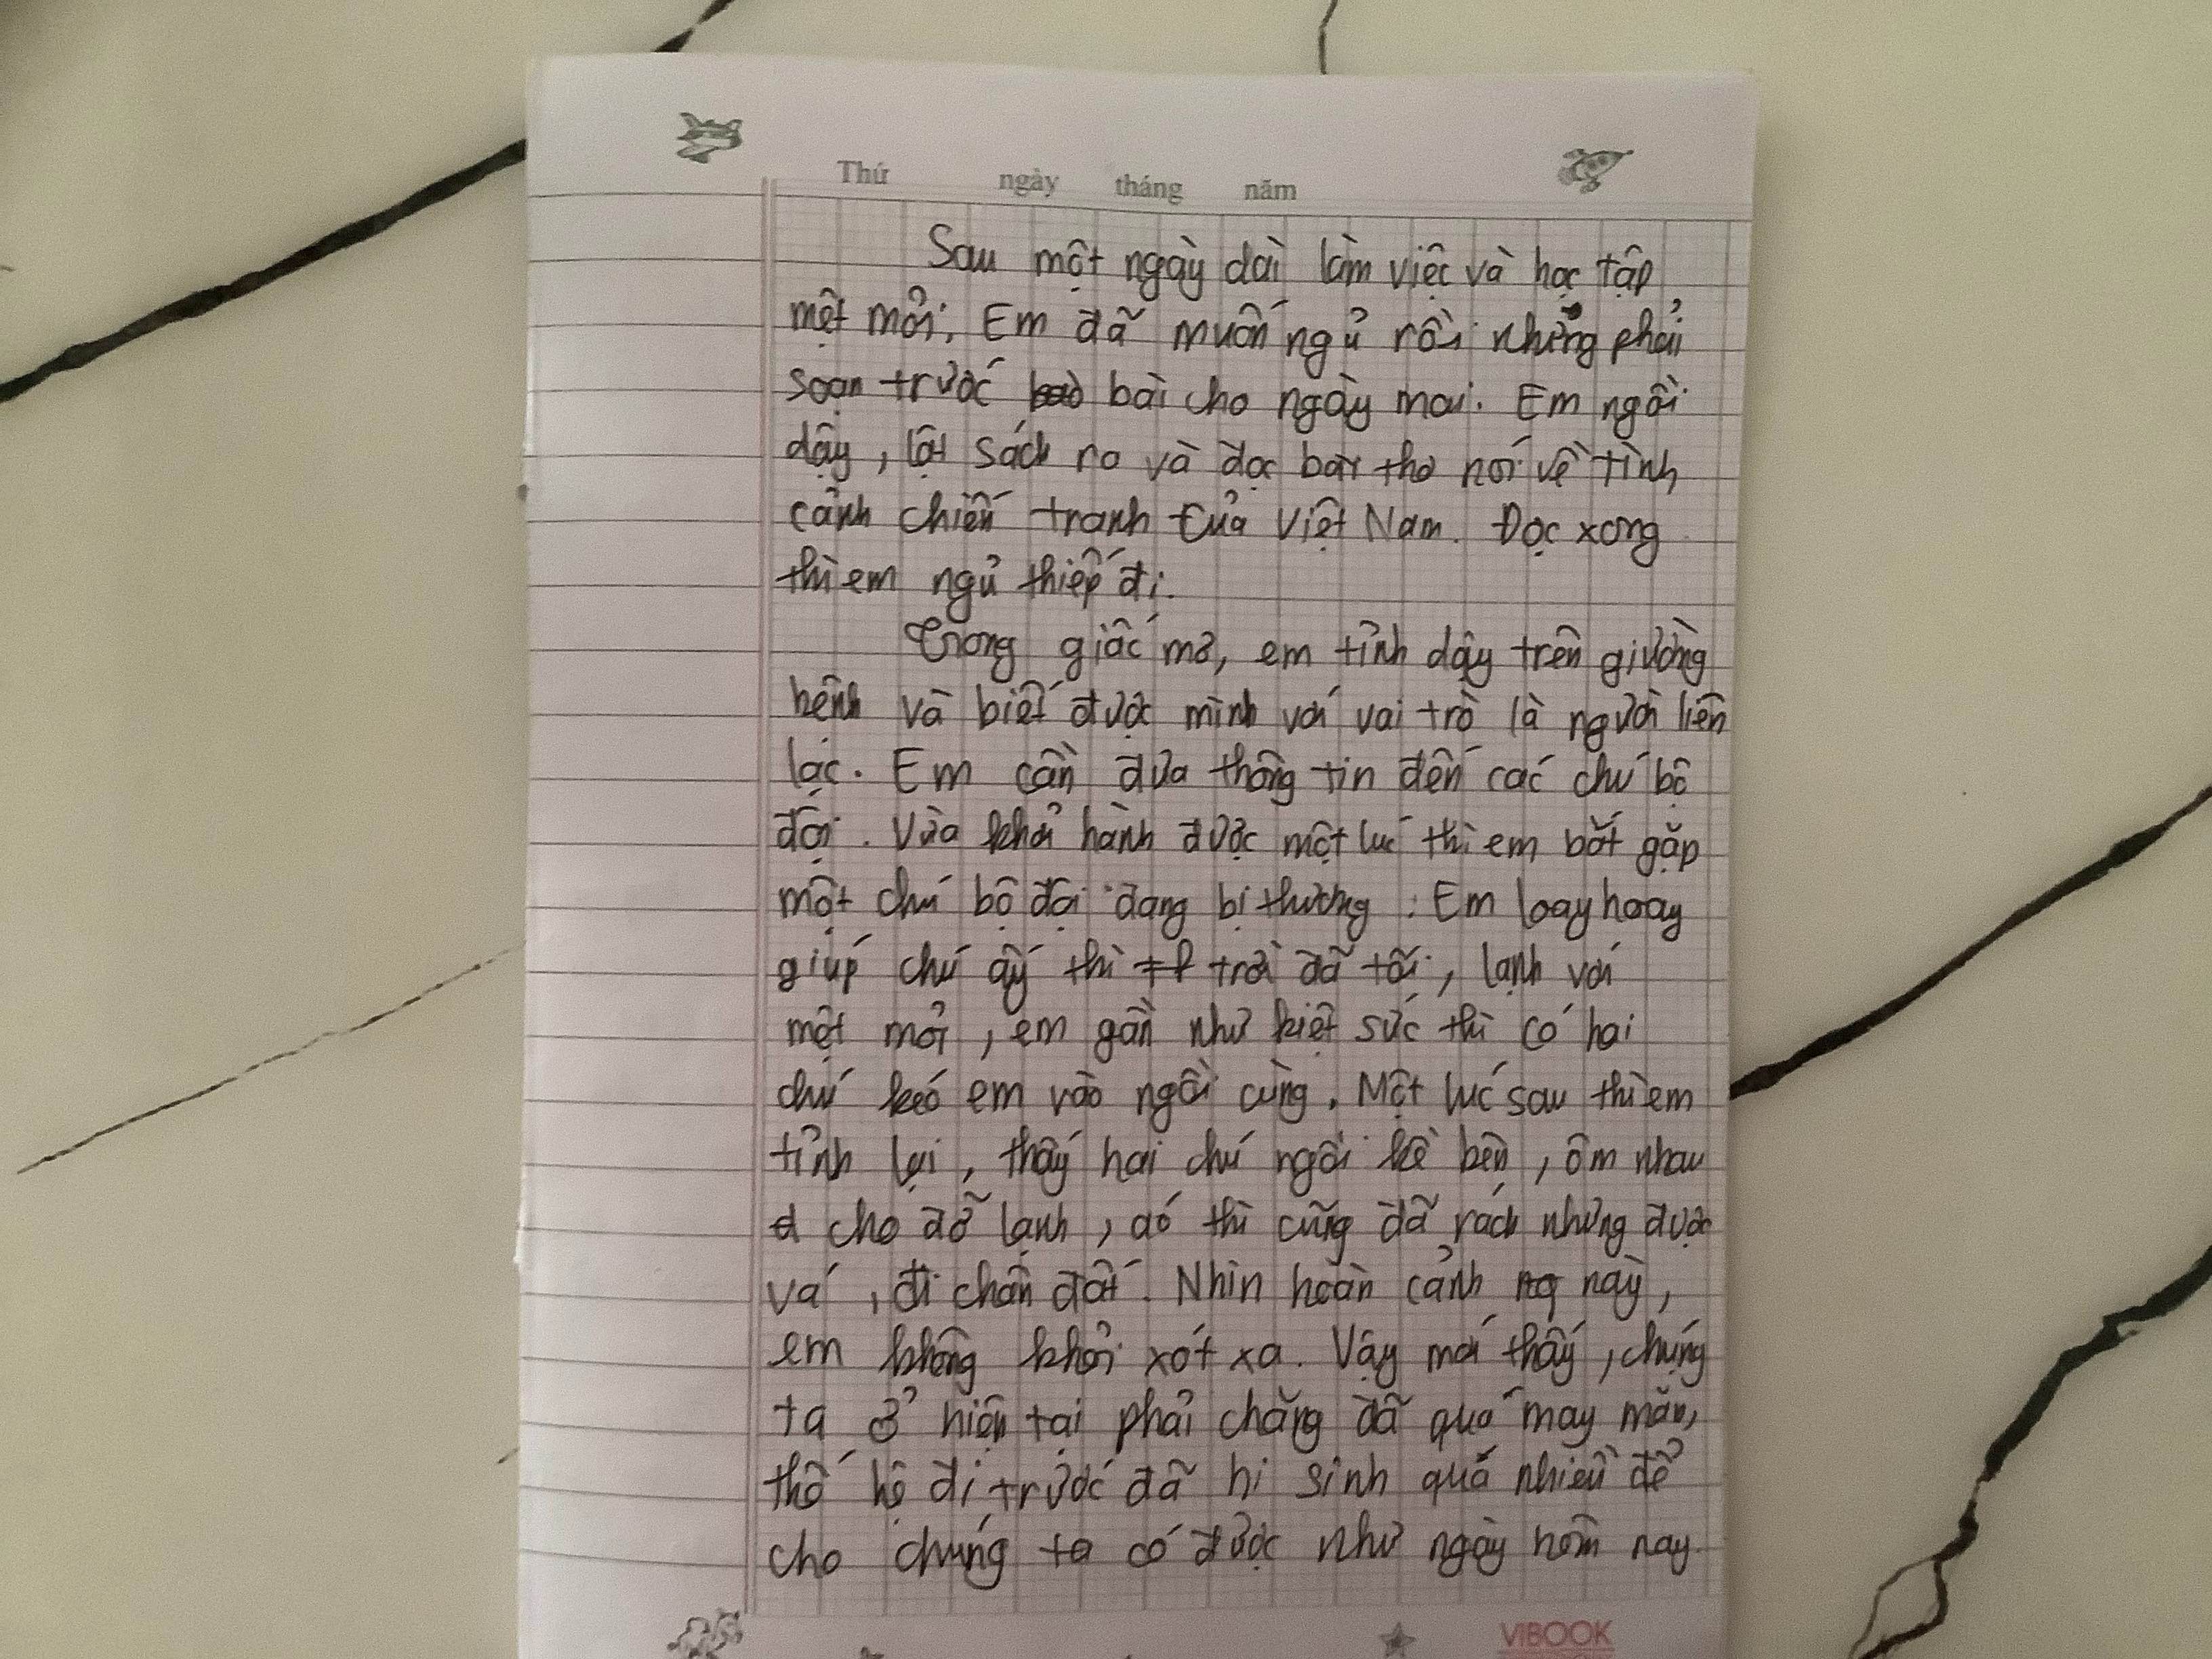 Thứ ngày tháng năm
Sau một ngày dài làm việc và học tập
mệt mỏi. Em đã muốn ngủ rồi nhưng phải
soạn trước bài cho ngày mai. Em ngồi
dậy, lật sách ra và đọc bài thơ nói về tình
cảnh chiến tranh của Việt Nam. Đọc xong
thì em ngủ thiếp đi.
Trong giấc mơ, em tỉnh dậy trên giường
bệnh và biết được mình với vai trò là người liên
lạc. Em cần đưa thông tin đến các chú bộ
đội. Vừa khởi hành được một lúc thì em bắt gặp
một chú bộ đội đang bị thương. Em loay hoay
giúp chú ấy thì trời đã tối, lạnh với
mệt mỏi, em gần như kiệt sức thì có hai
chú kéo em vào ngồi cùng. Một lúc sau thì em
tỉnh lại, thấy hai chú ngồi kề bên, ôm nhau
cho đỡ lạnh, áo thì cũng đã rách nhưng được
vá, đi chân đất. Nhìn hoàn cảnh này,
em không khỏi xót xa. Vậy mới thấy, chúng
ta ở hiện tại phải chăng đã quá may mắn,
thế hệ đi trước đã hi sinh quá nhiều để
cho chúng ta có được như ngày hôm nay.
VIBOOK